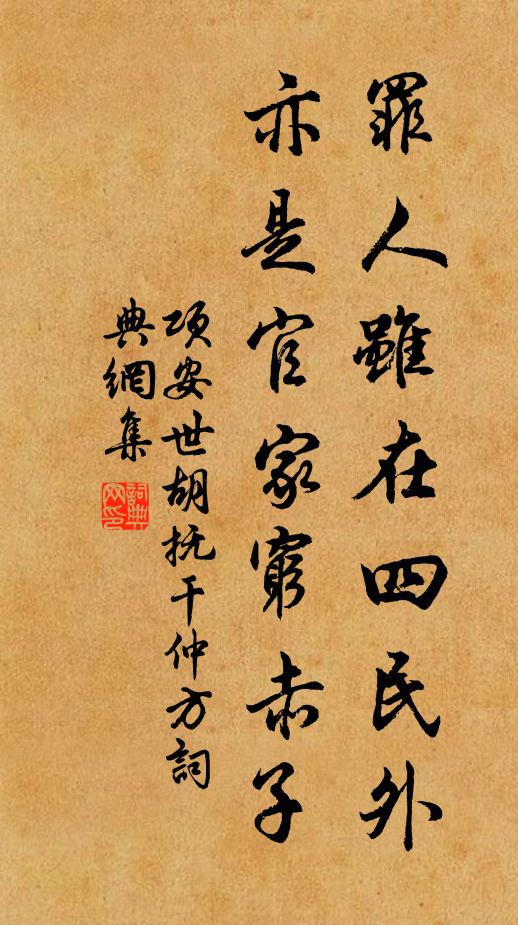 罪人雖在四民外
亦是官家窮赤子
項安世胡撫干仲方詞
典網集
詞典网印